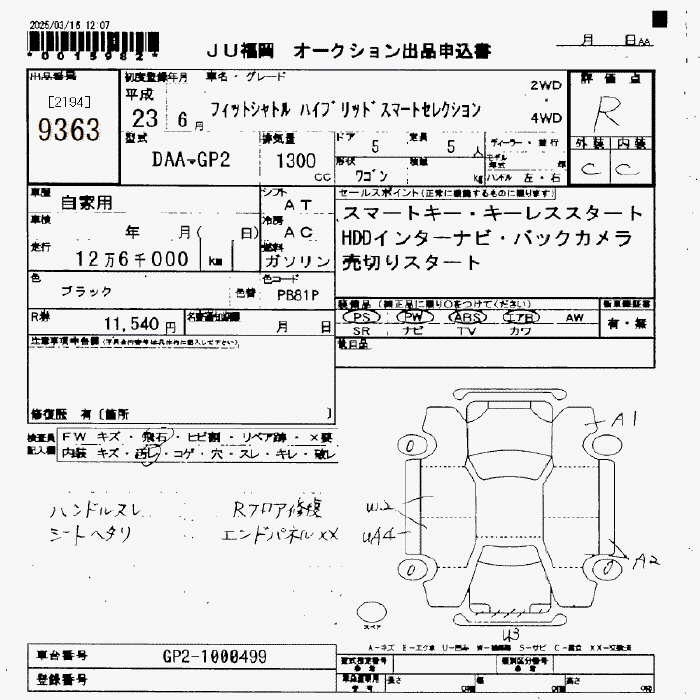 2025/03/16 12:07
*0015982*
JU福岡 オークション出品申込書
月 日 AA
出品番号
[2194]
9363
初度登録年月
平成
23 6月
車名・グレード
フィットシャトル ハイブリッドスマートセレクション
2WD
・
4WD
評価点
R
外装 内装
C C
型式
DAA-GP2
排気量
1300
CC
ドア
5
定員
5 人
形状
ワゴン
積載
kg
ディーラー・並行
モデル
年式 年
ハンドル 左・右
車歴
自家用
シフト
AT
セールスポイント(正常に機能するものに限ります)
スマートキー・キーレススタート
HDDインターナビ・バックカメラ
売切りスタート
車検
年 月( 日)
冷房
AC
走行
12万6千000 km
燃料
ガソリン
色
ブラック
色替
色コード
PB81P
装備品(純正品に限り○をつけてください)
PS PW ABS エアB AW
SR ナビ TV カワ
新車保証書
有・無
R券
11,540 円
名義変更期限
月 日
後日品
注意事項申告欄
修復歴 有〔箇所 〕
検査員
記入欄
FW キズ・飛石・ヒビ割・リペア跡・×要
内装 キズ・汚レ・コゲ・穴・スレ・キレ・破レ
ハンドルスレ
シートヘタリ
Rフロア修復
エンドパネルXX
A1
W2
UA4
A2
U3
0
0
0
スペア
A-キズ E-エクボ U-凹み W-補修跡 S-サビ C-腐食 XX-交換済
車台番号
GP2-1000499
登録番号
型式指定番号
類別区分番号
長さ cm
幅 cm
高さ cm